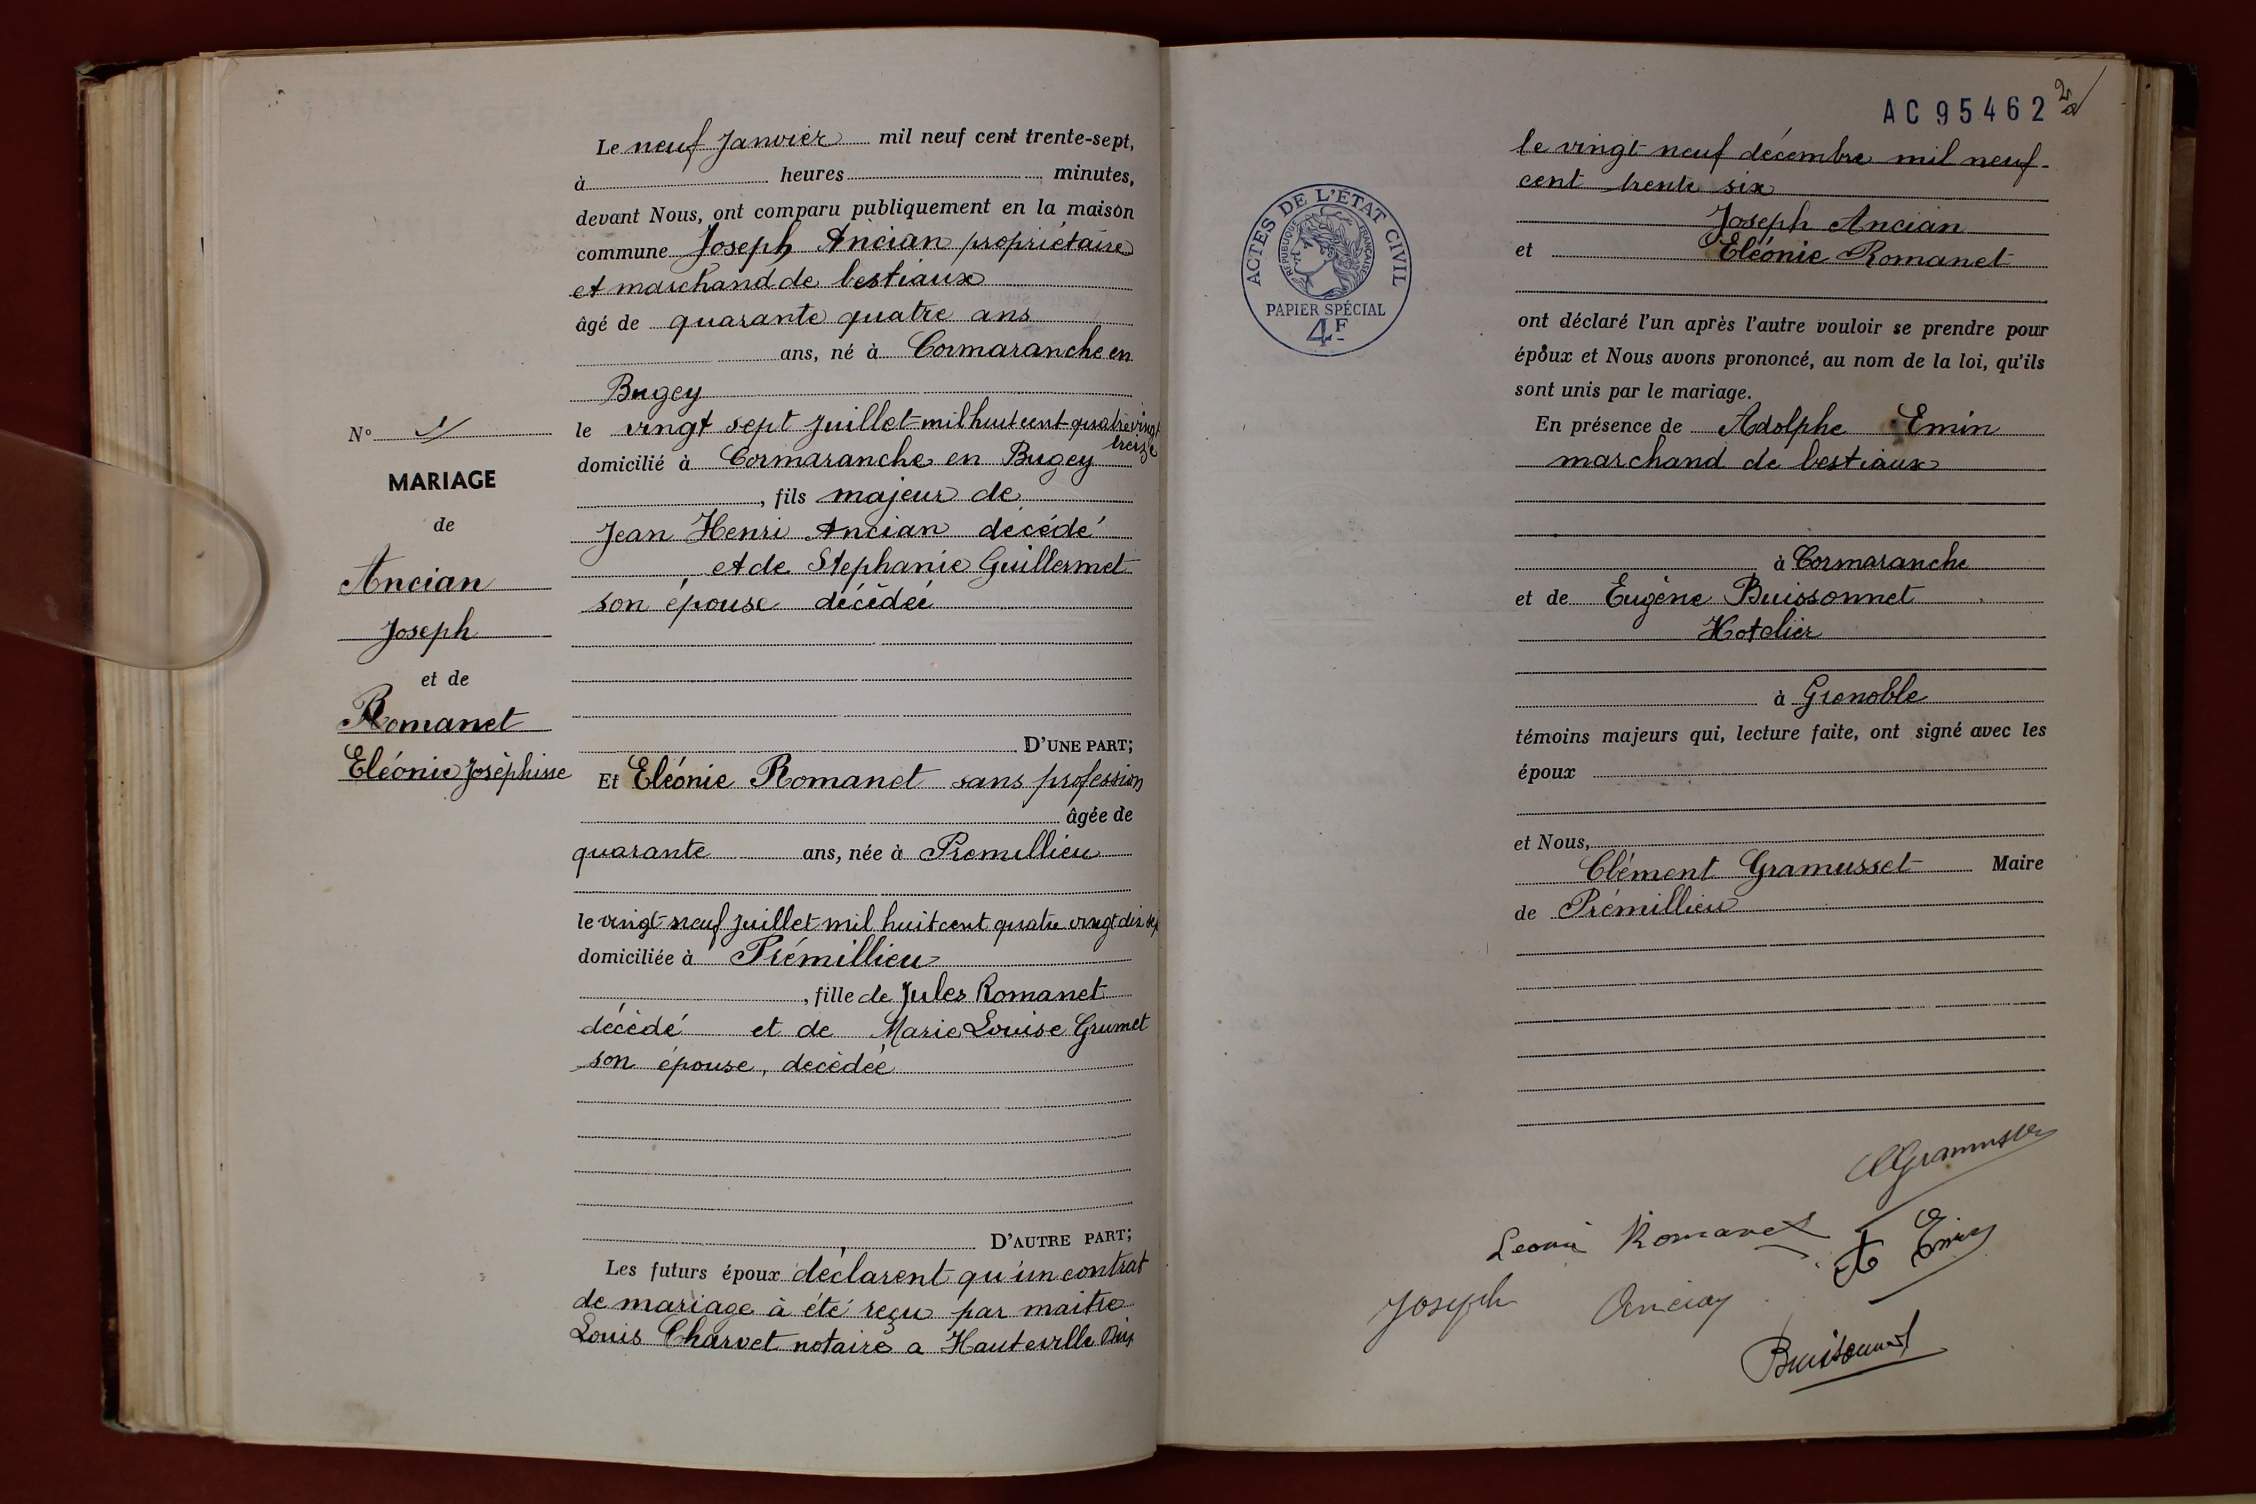 Le neuf Janvier mil neuf cent trente-sept,
à heures minutes,
devant Nous, ont comparu publiquement en la maison
commune Joseph Ancian propriétaire
et marchand de bestiaux
âgé de quarante quatre ans
ans, né à Cormaranche en
Bugey
le vingt sept juillet mil huit cent quatre vingt
treize
domicilié à Cormaranche en Bugey
, fils majeur de
Jean Henri Ancian décédé
et de Stephanie Guillermet
son épouse décédée
D'UNE PART;
Et Eléonie Romanet sans profession
âgée de
quarante ans, née à Premillieu
le vingt neuf juillet mil huit cent quatre vingt dix sep
domiciliée à Prémillieu
, fille de Jules Romanet
décédé et de Marie Louise Grumet
son épouse, decédée
D'AUTRE PART;
Les futurs époux déclarent qu'un contrat
de mariage à été reçu par maitre
Louis Charvet notaire a Hauteville
N° 1
MARIAGE
de
Ancian
Joseph
et de
Romanet
Eléonie Joséphine
AC 95462
2
ACTES DE L'ÉTAT CIVIL
RÉPUBLIQUE FRANÇAISE
PAPIER SPÉCIAL
4F
le vingt neuf décembre mil neuf
cent trente six
Joseph Ancian
et Eléonie Romanet
ont déclaré l'un après l'autre vouloir se prendre pour
époux et Nous avons prononcé, au nom de la loi, qu'ils
sont unis par le mariage.
En présence de Adolphe Emin
marchand de bestiaux
à Cormaranche
et de Eugène Buissonnet
Hotelier
à Grenoble
témoins majeurs qui, lecture faite, ont signé avec les
époux
et Nous,
Clément Gramusset Maire
de Prémillieu
Gramusset
Leonie Romanet
Emin
Joseph Ancian
Buissonnet